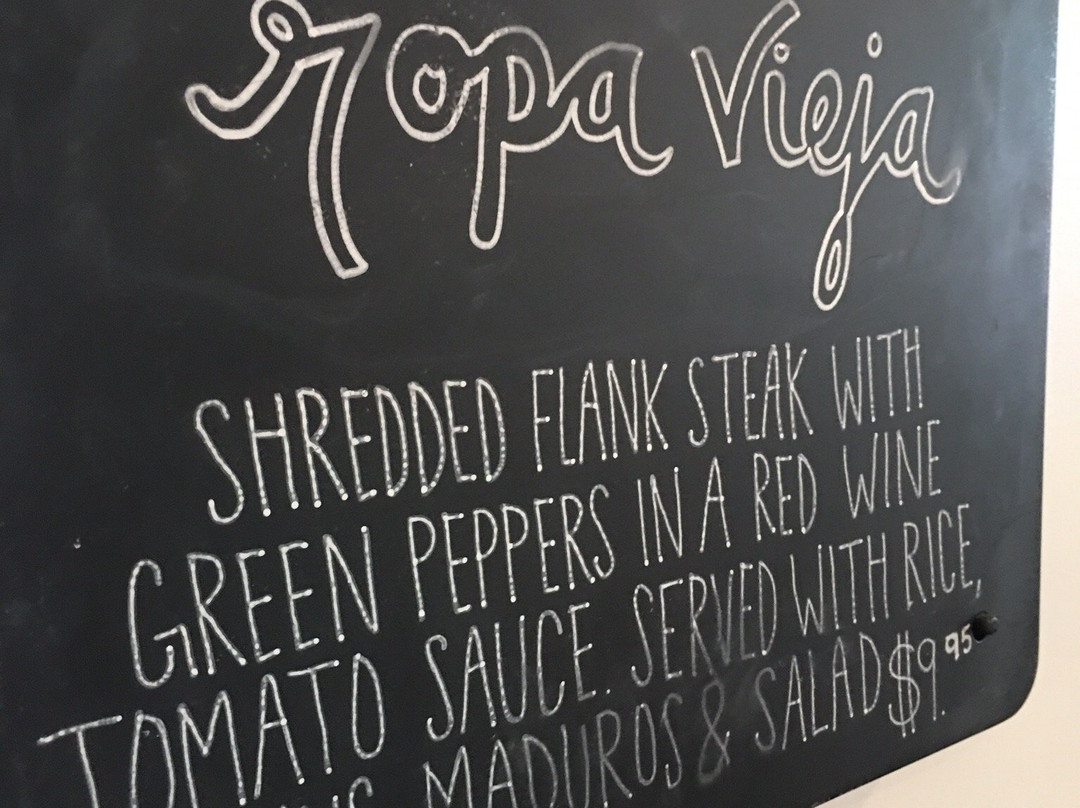 ropa vieja
SHREDDED FLANK STEAK WITH
GREEN PEPPERS IN A RED WINE
TOMATO SAUCE. SERVED WITH RICE,
MADUROS & SALAD $9.95